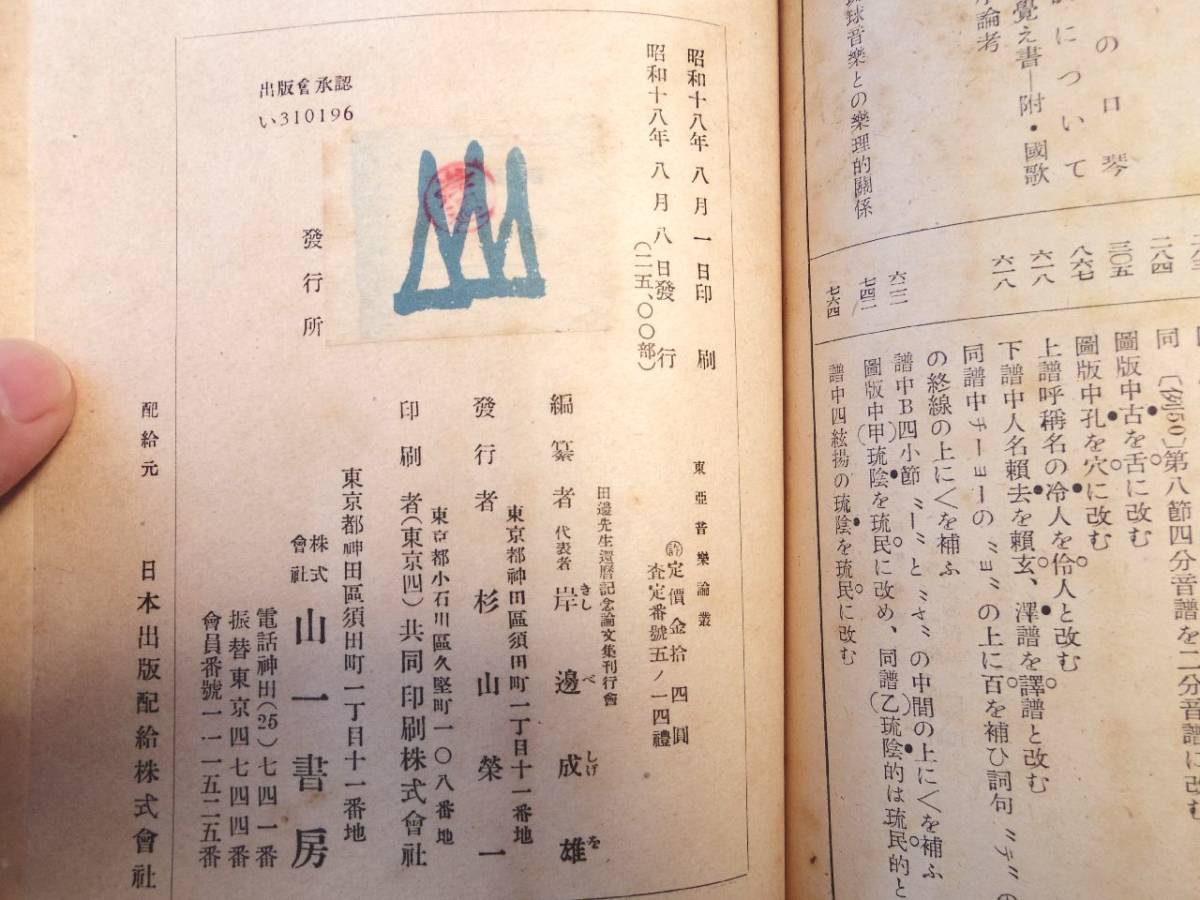 の口琴
について
覺え書―附・國歌
論考
球音樂との樂理的關係
二八四
三〇五
八六七
六一八
六一八
七四二
七六四
同〔例50〕第八節四分音譜を二分音譜に改む
圖版中古を舌に改む
圖版中孔を穴に改む
上譜呼稱名の冷人を伶人と改む
下譜中人名賴去を賴玄、澤譜を譯譜と改む
同譜中チーヨーの〃ヨ〃の上に百を補ひ詞句〃デ〃の
の終線の上に〱を補ふ
譜中B四小節〃ー〃と〃サ〃の中間の上に〱を補ふ
圖版中(甲)琉陰を琉民に改め、同譜(乙)琉陰的は琉民的と
譜中四絃揚の琉陰を琉民に改む
昭和十八年八月一日印刷
昭和十八年八月八日發行
(二五、〇〇部)
出版會承認
い310196
東亞音樂論叢
定價金拾四圓
査定番號五ノ一四禮
田邊先生還曆記念論文集刊行會
編纂者 代表者 岸邊成雄
きし べ しげ を
東京都神田區須田町一丁目十一番地
發行者 杉山榮一
東京都小石川區久堅町一〇八番地
印刷者(東京四)共同印刷株式會社
東京都神田區須田町一丁目十一番地
發行所
株式會社 山一書房
電話神田(25)七四一番
振替東京四七四四番
會員番號一一一五二五番
配給元 日本出版配給株式會社